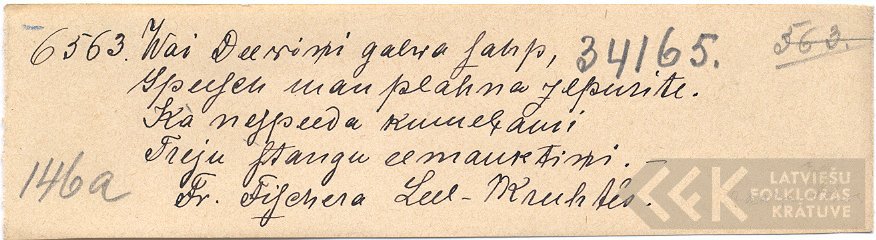 6563. Wai Deewiņi galwa sahp, 34165. 563.
Speesch man plahna zepurite.
Ka nespeeda kumeļami
Treju stangu eemauktiņi. –
146a Fr. Fischera Leel-Kruhtēs.
LATVIEŠU
FOLKLORAS
KRĀTUVE